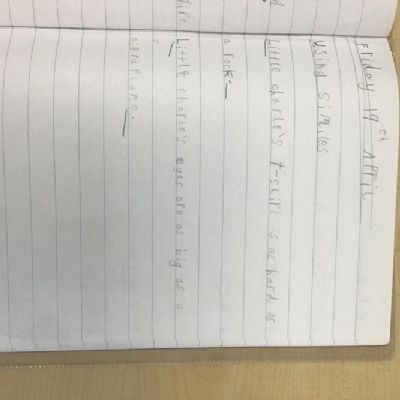 Friday 19th April
Using Similes
Little charlie's t-shirt is as hard as
a rock.
Little charlie's eyes are as big as a
aeroplane.